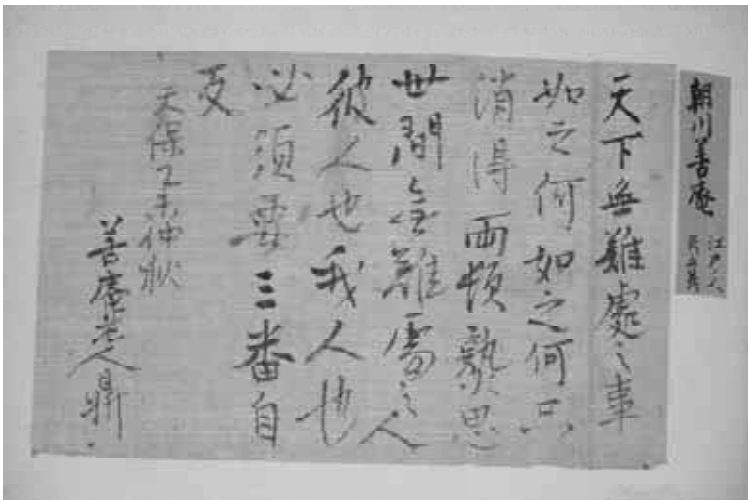 朝川善庵
江戸人
天下無難處之事
如之何如之何只
消得兩頓熟思
世間無難處之人
彼人也我人也
必須要三番自
反
天保乙未仲秋
善庵老人鼎